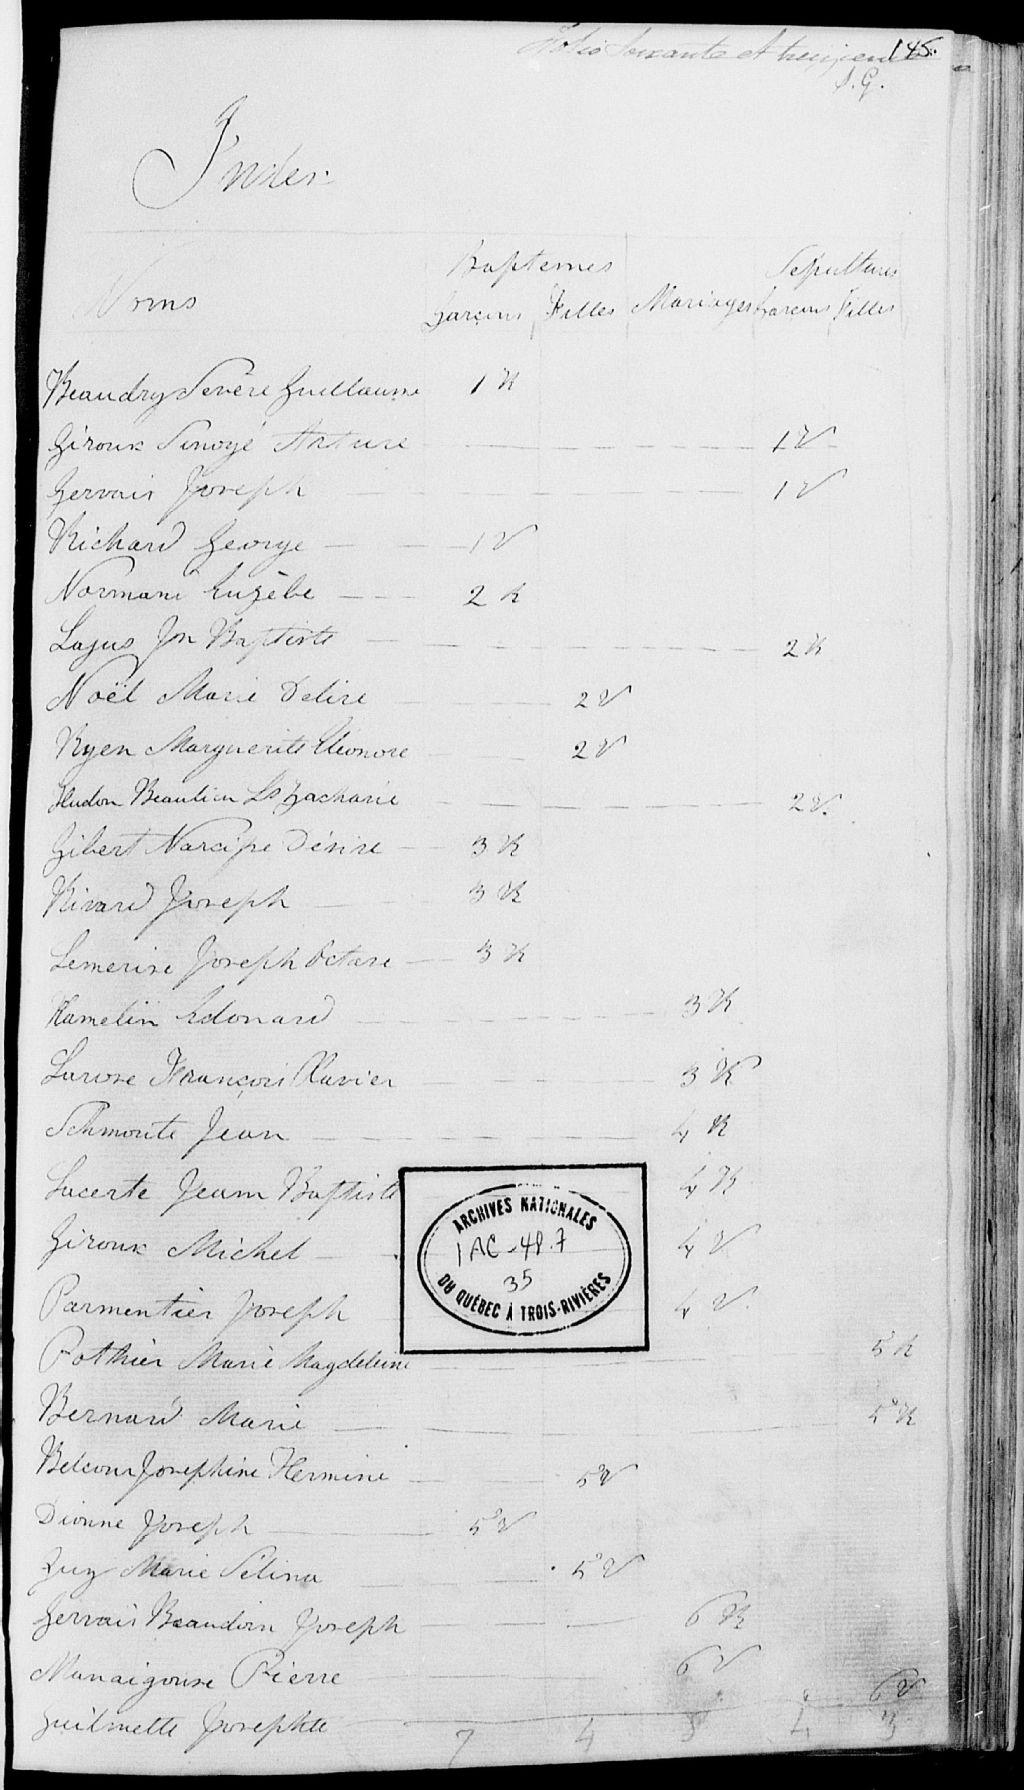 Folio Soixante et treizième 145.
S. G.
Index
Baptemes Sépultures
Noms Garçons Filles Mariages Garçons Filles
Beaudry Sévère Guillaume 1 R
Giroux Arture 1 V
Gervais Joseph 1 V
Richard George 1 V
Normand Euzèbe 2 R
Lajus Jn Baptiste 2 R
Noël Marie Delire 2 V
Ryen Marguerite Eléonore 2 V
Hudon Beaulieu Ls Zacharie 2 V.
Gibert Narcisse Désiré 3 R
Rivard Joseph 3 R
Lemerise Joseph Octave 3 R
Hamelin Edouard 3 R
Larose François Xavier 3 R
Schmoute Jean 4 R
Lacerte Jeam Baptiste 4 R
Giroux Michel 4 V
Parmentier Joseph 4 V.
Pothier Marie Magdeleine 5 R
Bernard Marie 5 R
Belcour Josephine Hermine 5 V
Dionne Joseph 5 V
Guy Marie Sélina 5 V
Gervais Beaudoin Joseph 6 R
Manaigouse Pierre 6 V
Guilmette Josephte 6 V
7 4 8 4 3
ARCHIVES NATIONALES
1 AC-48.7
35
DU QUÉBEC À TROIS-RIVIÈRES